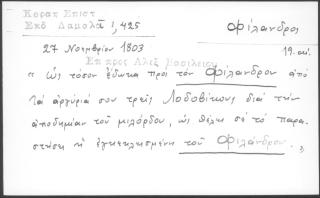 Κοραη Επιστ
Εκδ Δαμαλᾶ 1, 425
Φίλανδρος
27 Νοεμβρίου 1803
19. αἰ.
Ἐπ πρὸς Ἀλεξ Βασιλείου
« ὡς τόσον ἔδωκα πρὸς τὸν Φίλανδρον ἀπὸ
τὰ ἀργύριά σου τρεῖς Λοδοβίκους διὰ τὴν
ἀποδημίαν τοῦ μιλόρδου, ὡς θέλει σὲ τὸ παρα-
στήσῃ ἡ ἐγκεκλεισμένη τοῦ Φιλάνδρου. »